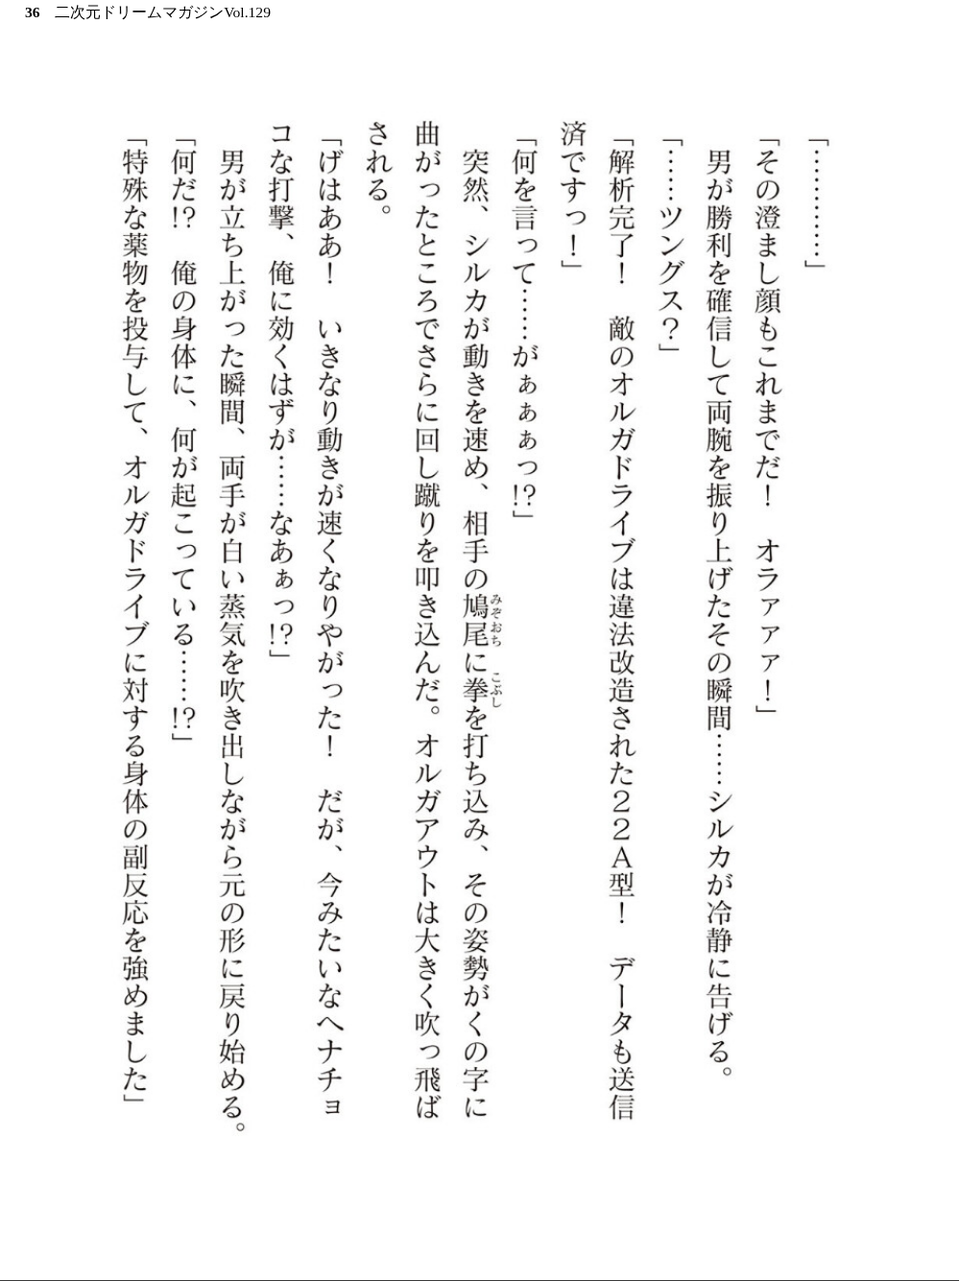 36 二次元ドリームマガジンVol.129
「…………」
「その澄まし顔もこれまでだ！　オラァァァ！」
　男が勝利を確信して両腕を振り上げたその瞬間……シルカが冷静に告げる。
「……ツングス？」
「解析完了！　敵のオルガドライブは違法改造された２２Ａ型！　データも送信
済ですっ！」
「何を言って……がぁぁぁっ!?」
　突然、シルカが動きを速め、相手の鳩尾に拳を打ち込み、その姿勢がくの字に
みぞおち
こぶし
曲がったところでさらに回し蹴りを叩き込んだ。オルガアウトは大きく吹っ飛ば
される。
「げはああ！　いきなり動きが速くなりやがった！　だが、今みたいなヘナチョ
コな打撃、俺に効くはずが……なあぁっ!?」
　男が立ち上がった瞬間、両手が白い蒸気を吹き出しながら元の形に戻り始める。
「何だ!?　俺の身体に、何が起こっている……!?」
「特殊な薬物を投与して、オルガドライブに対する身体の副反応を強めました」